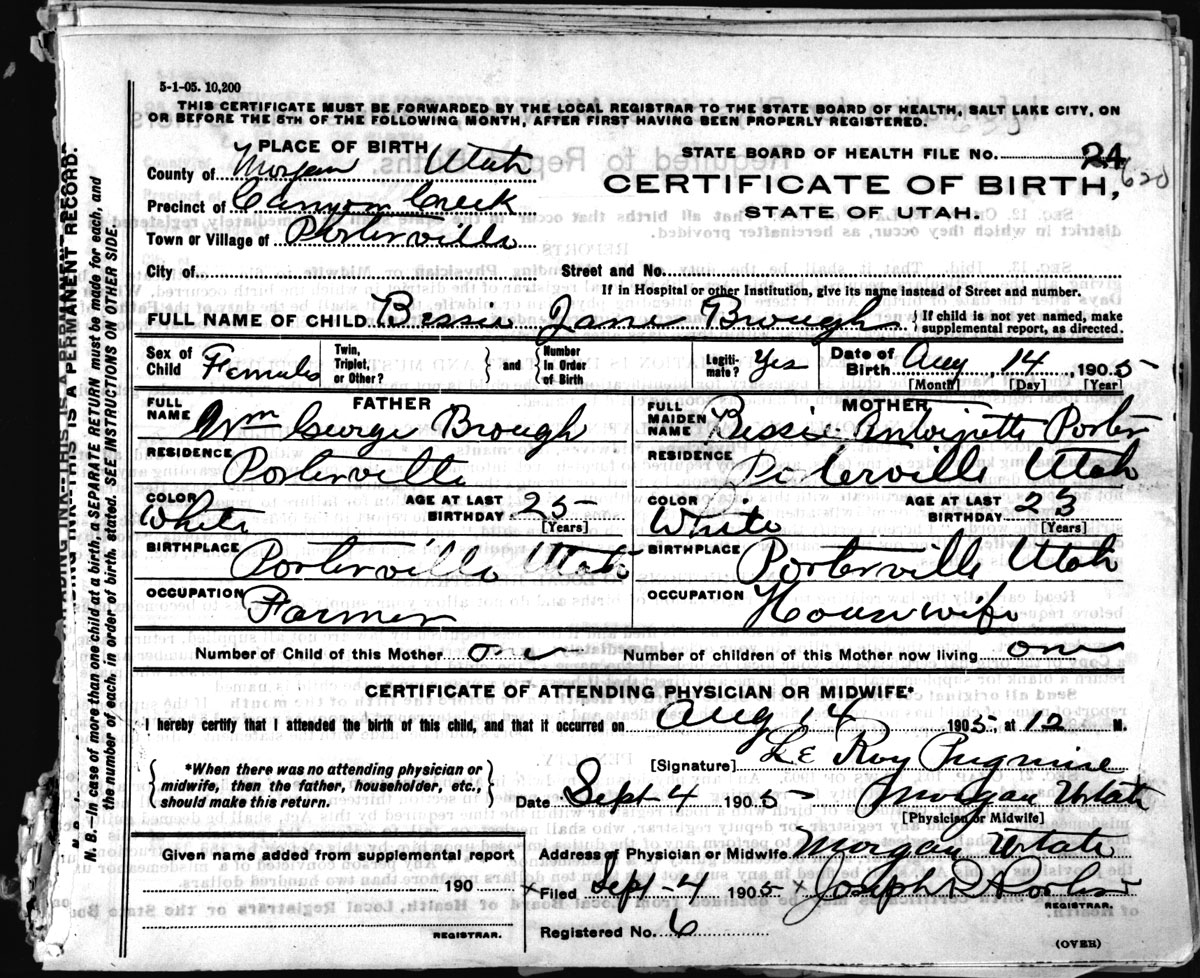 5-1-05. 10,200
THIS CERTIFICATE MUST BE FORWARDED BY THE LOCAL REGISTRAR TO THE STATE BOARD OF HEALTH, SALT LAKE CITY, ON
OR BEFORE THE 5TH OF THE FOLLOWING MONTH, AFTER FIRST HAVING BEEN PROPERLY REGISTERED.
PLACE OF BIRTH
County of Morgan Utah
Precinct of Canyon Creek
Town or Village of Porterville
City of
STATE BOARD OF HEALTH FILE NO. 24
620
CERTIFICATE OF BIRTH,
STATE OF UTAH.
Street and No.
If in Hospital or other Institution, give its name instead of Street and number.
FULL NAME OF CHILD Bessie Jane Brough { If child is not yet named, make supplemental report, as directed.
Sex of Child Female Twin, Triplet, or Other? } and { Number In Order of Birth Legitimate? Yes Date of Birth Aug 14, 1905
[Month] [Day] [Year]
FATHER
FULL NAME Wm George Brough
RESIDENCE Porterville
COLOR White AGE AT LAST BIRTHDAY 25 [Years]
BIRTHPLACE Porterville Utah
OCCUPATION Farmer
MOTHER
FULL MAIDEN NAME Bessie Antoinette Porter
RESIDENCE Porterville Utah
COLOR White AGE AT LAST BIRTHDAY 23 [Years]
BIRTHPLACE Porterville Utah
OCCUPATION Housewife
Number of Child of this Mother one Number of children of this Mother now living one
CERTIFICATE OF ATTENDING PHYSICIAN OR MIDWIFE*
I hereby certify that I attended the birth of this child, and that it occurred on Aug 14 1905 at 12 M.
*When there was no attending physician or
midwife, then the father, householder, etc.,
should make this return.
[Signature] Le Roy Pugmire
Date Sept 4 1905 Morgan Utah
[Physician or Midwife]
Given name added from supplemental report
190
REGISTRAR.
Address of Physician or Midwife Morgan Utah
x Filed Sept-4 1905 x Joseph R Porter
REGISTRAR.
Registered No. 6
(OVER)
N. B.—In case of more than one child at a birth, a SEPARATE RETURN must be made for each, and
the number of each, in order of birth, stated. SEE INSTRUCTIONS ON OTHER SIDE.
THIS IS A PERMANENT RECORD.